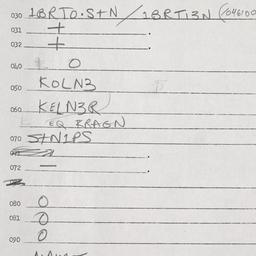 030 1BRTO.STN / 1BRTI3N (1046100
031 +
032 +
040 0
050 KOLN3
060 KELN3R
EQ BRAGN
070 STN1PS
072 —
080 0
081 0
090 0